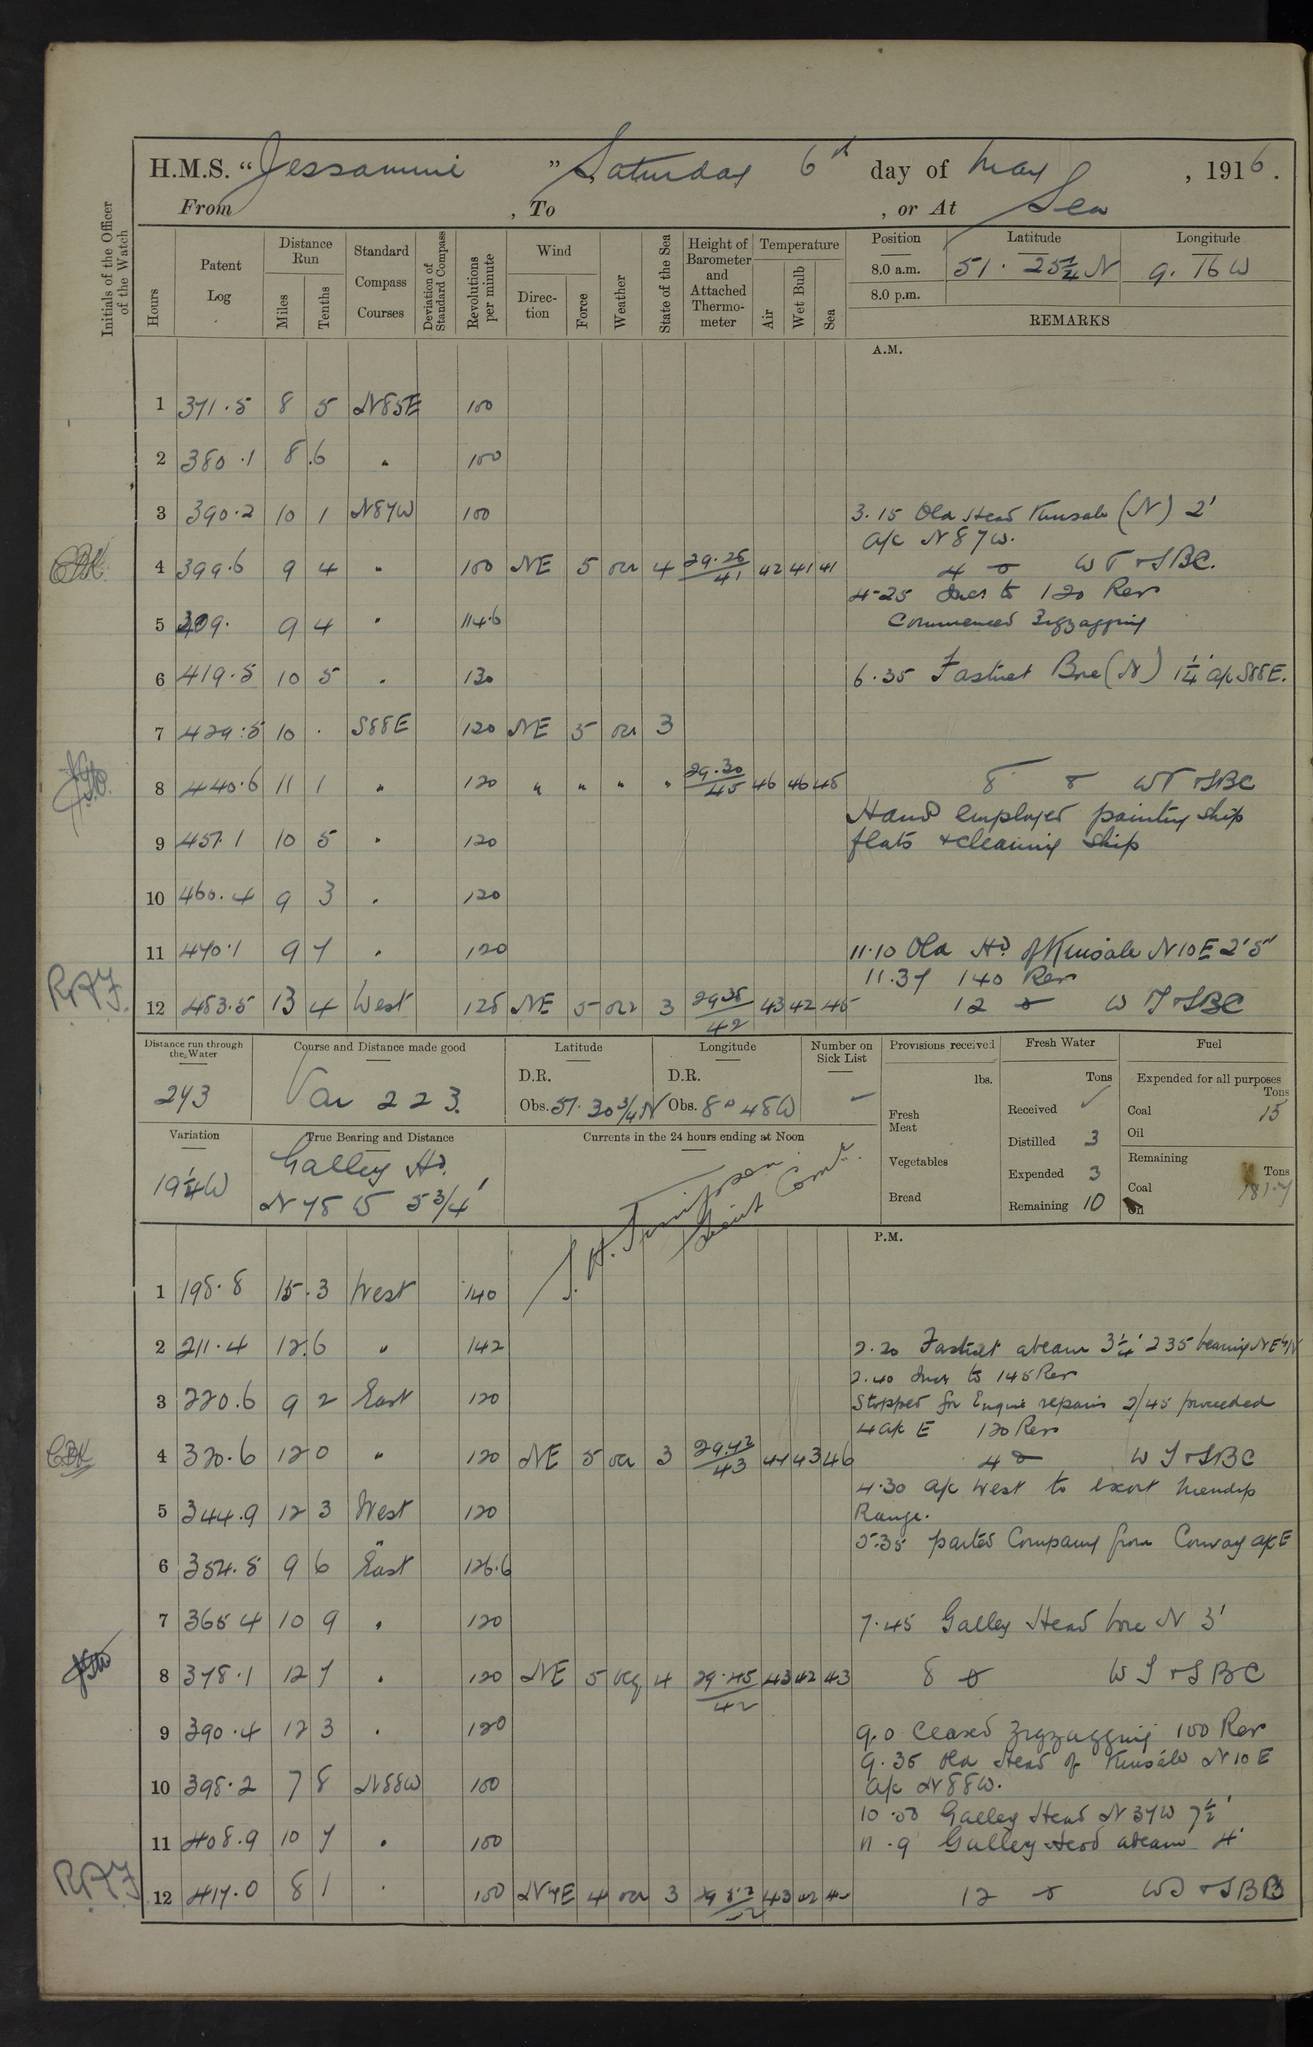 H.M.S. "Jessamine" Saturday 6th day of May, 1916.
From , To , or At Sea
Initials of the Officer of the Watch
Hours
Patent Log
Distance Run
Miles
Tenths
Standard Compass Courses
Deviation of Standard Compass
Revolutions per minute
Wind
Direction
Force
Weather
State of the Sea
Height of Barometer and Attached Thermometer
Temperature
Air
Wet Bulb
Sea
Position
Latitude
Longitude
8.0 a.m. 51. 25 3/4 N 9. 16 W
8.0 p.m.
REMARKS
A.M.
1 371.5 8 5 N85E 100
2 380.1 8.6 " 100
3 390.2 10 1 N87W 100
3.15 Old Head Kinsale (N) 2'
a/c N 87 W.
4 399.6 9 4 " 100 NE 5 oc 4 29.28/41 42 41 41
4 WT & SBC.
4-25 Incs to 120 Rev
5 309. 9 4 " 114.6
Commenced Zigzagging
6 419.5 10 5 " 120
6.35 Fastnet Bore (N) 1 1/4' a/c S88E.
7 429.5 10 . S88E 120 NE 5 oc 3
8 440.6 11 1 " 120 " " " " 29.30/45 46 46 45
8 WT & SBC
Hands employed painting ship
9 451.1 10 5 " 120
flats & cleaning ship
10 460.4 9 3 " 120
11 470.1 9 7 " 120
11.10 Old Hd of Kinsale N10E 2'5"
11.37 140 Rev
RAF
12 483.5 13 4 West 125 NE 5 oc 3 29.35/42 43 42 45
12 WT & SBC
Distance run through the Water
243
Course and Distance made good
Var 223.
Latitude
D.R.
Obs. 51. 30 3/4 N
Longitude
D.R.
Obs. 8° 48 W
Number on Sick List
Provisions received
lbs.
Fresh Meat
Vegetables
Bread
Fresh Water
Tons
Received
Distilled 3
Expended 3
Remaining 10
Fuel
Expended for all purposes
Tons
Coal 15
Oil
Remaining
Tons
Coal 181.7
Oil
Variation
19 1/4 W
True Bearing and Distance
Galley Hd.
N 75 W 5 3/4'
Currents in the 24 hours ending at Noon
Lieut Comr.
P.M.
1 198.8 15.3 West 140
2 211.4 12.6 " 142
2.20 Fastnet abeam 3 1/4' 235 bearing NE
2.40 Incs to 145 Rev
3 220.6 9 2 East 120
Stopped for Engine repairs 2/45 proceeded
4 a/c E 120 Rev
CBK
4 320.6 12 0 " 120 NE 5 oc 3 29.42/43 44 43 46
4 WT & SBC
4.30 a/c West to escort Mendip
5 344.9 12 3 West 120
Range.
5.35 parted Company from Convoy a/c E
6 354.5 9 6 East 126.6
7 365 4 10 9 " 120
7.45 Galley Head bore N 3'
8 378.1 12 7 " 120 NE 5 ocq 4 29.45/42 43 42 43
8 WT & SBC
9 390.4 12 3 " 120
9.0 Ceased Zigzagging 100 Rev
9.35 Old Head of Kinsale N 10 E
10 398.2 7 8 N88W 100
a/c N 88 W.
10.00 Galley Head N 37W 7 1/2'
11 408.9 10 7 " 100
11.9 Galley Head abeam 4'
RAF
12 417.0 8 1 " 100 4 oc 3 43
12